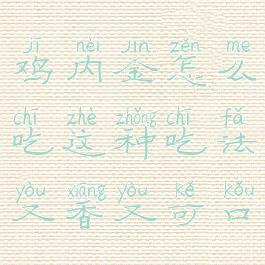 jī nèi jīn zěn me
鸡内金怎么
chī zhè zhǒng chī fǎ
吃这种吃法
yòu xiāng yòu kě kǒu
又香又可口